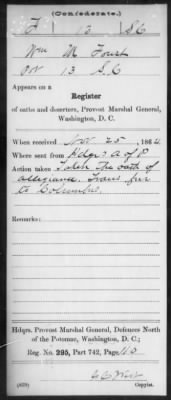 (Confederate.)
F 13 S C
Wm M Foust
Pvt 13 S.C
Appears on a
Register
of oaths and deserters, Provost Marshal General,
Washington, D. C.
When received Nov. 25, 1864
Where sent from Hdqrs A of P
Action taken Took the oath of
allegiance. Trans fur
to Columbus.
Remarks:
Hdqrs. Provost Marshal General, Defences North
of the Potomac, Washington, D. C.;
Reg. No. 295, Part 742, Page
(639)
Copyist.